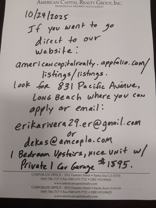 AMERICAN CAPITAL REALTY GROUP, INC.
10/24/2025
If you want to go
direct to our
website:
americancapitalrealty.appfolio.com/
listings/listings.
Look for 831 Pacific Avenue,
Long Beach where you can
apply or email:
erikarivera29.er@gmail.com
or
dekas@amcapla.com
1 Bedroom Upstairs, nice unit w/
Private 1 Car Garage $1895.